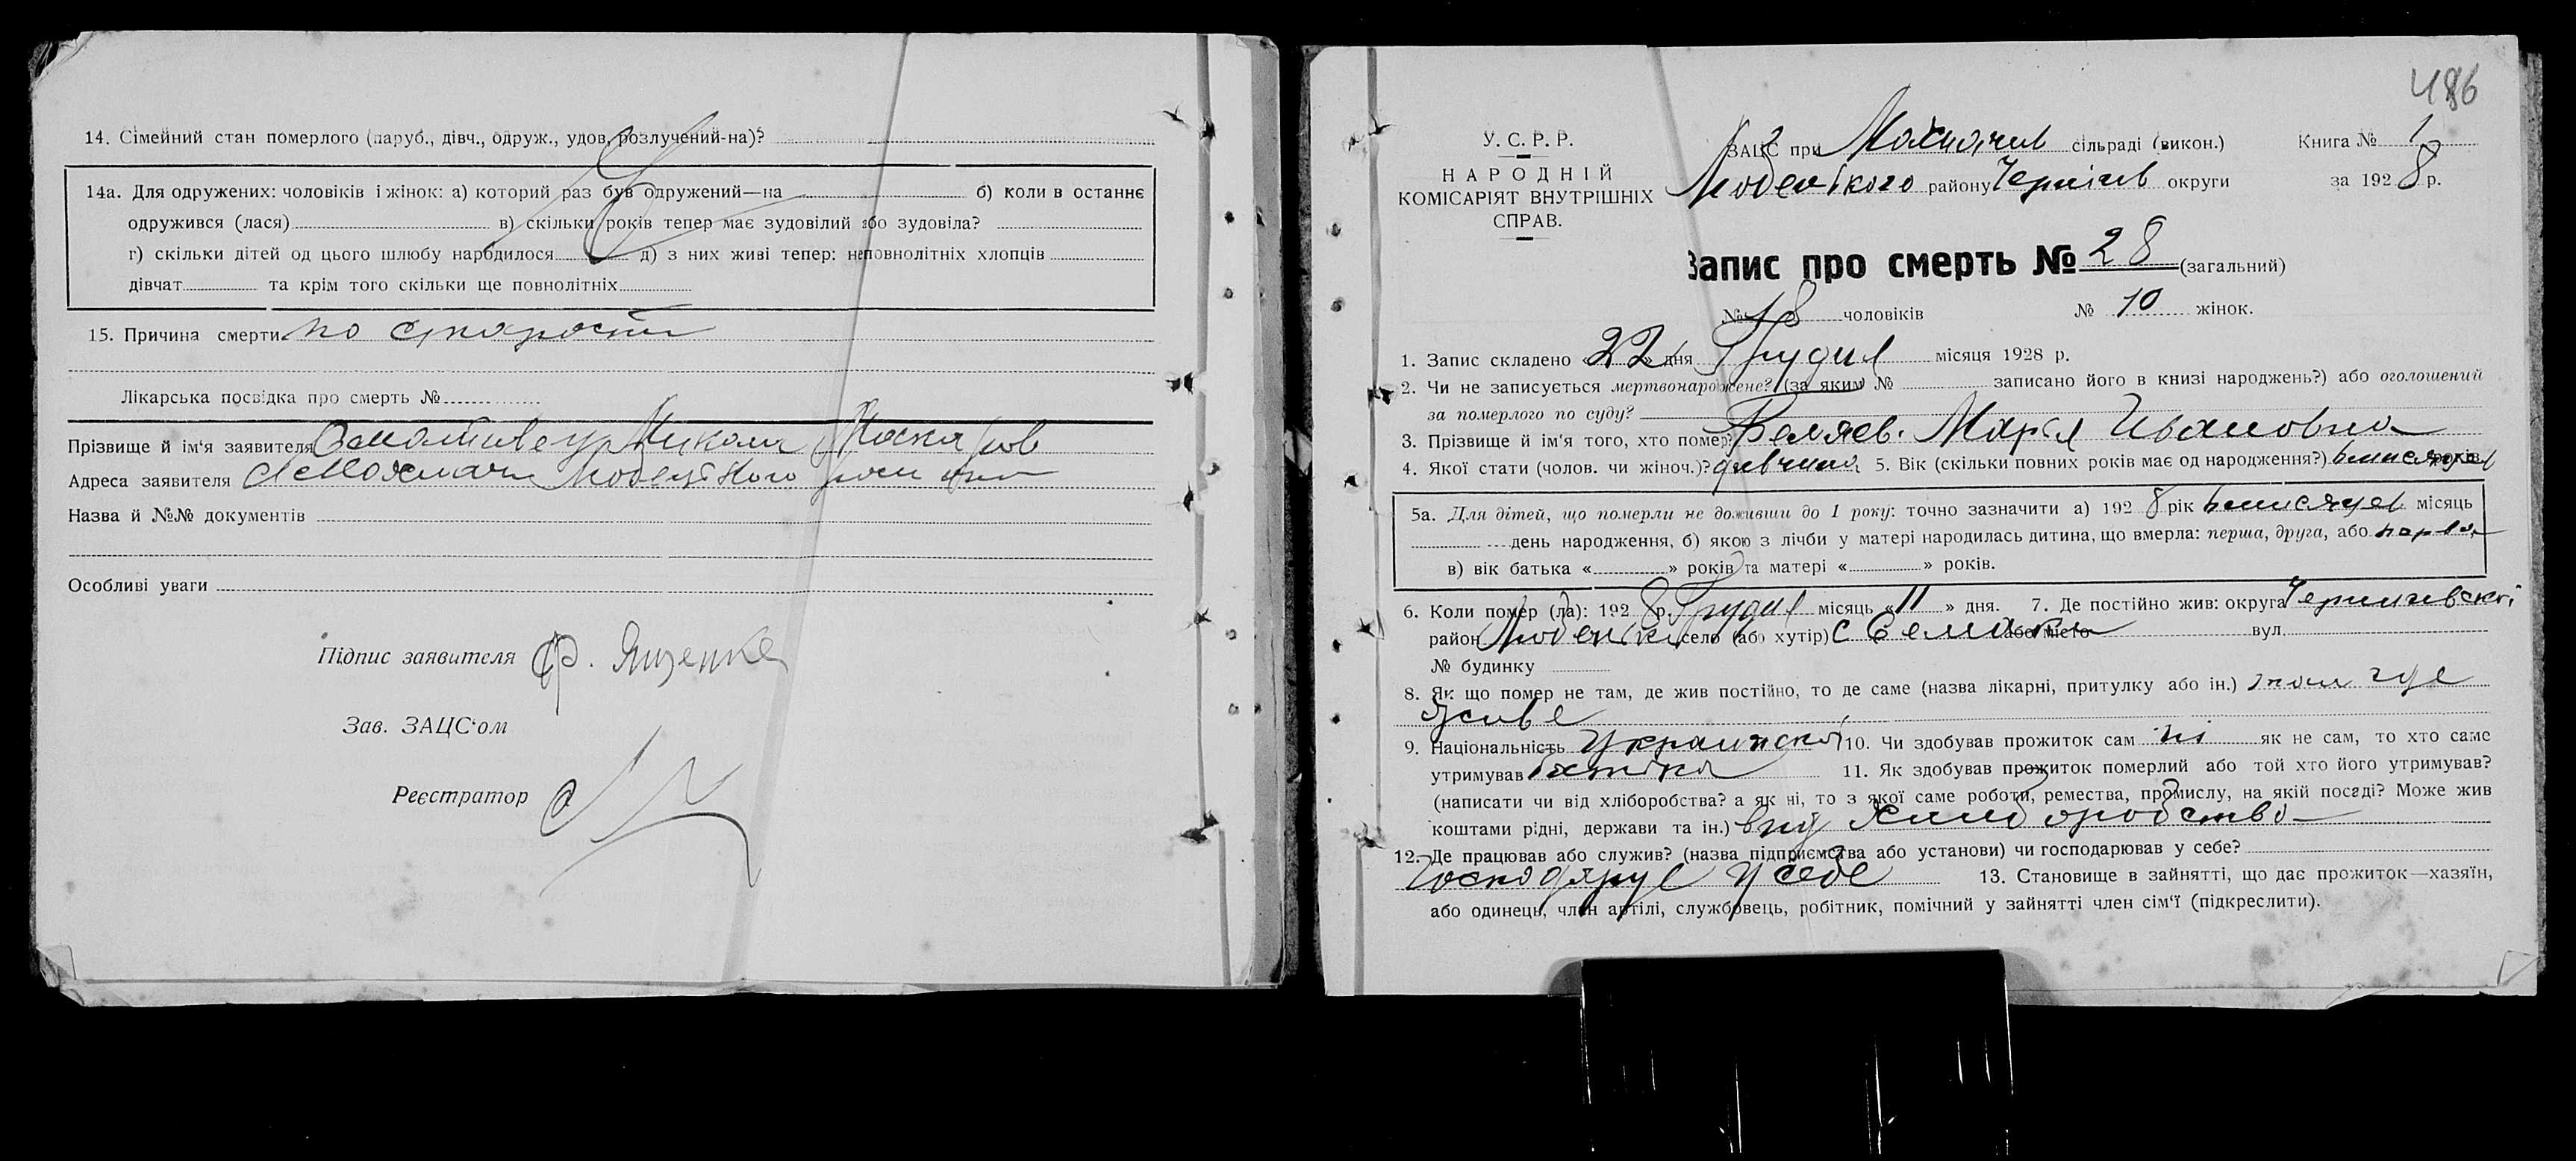 14. Сімейний стан померлого (паруб., дівч., одруж., удов, розлучений-на)?
14а. Для одружених: чоловіків і жінок: а) которий раз був одружений—на б) коли в останнє
одружився (лася) в) скільки років тепер має зудовілий або зудовіла?
г) скільки дітей од цього шлюбу народилося д) з них живі тепер: неповнолітніх хлопців
дівчат та крім того скільки ще повнолітніх
15. Причина смерти по старости
Лікарська посвідка про смерть №
Прізвище й ім'я заявителя Никола
Адреса заявителя
Назва й №№ документів
Особливі уваги
Підпис заявителя Ф. Ященко
Зав. ЗАЦС'ом
Реєстратор
486
У. С. Р. Р.
НАРОДНІЙ
КОМІСАРІЯТ ВНУТРІШНІХ
СПРАВ.
ЗАЦС при сільраді (викон.) Книга № 1
району Чернігів округи за 1928 р.
Запис про смерть № 28 (загальний)
№ 18 чоловіків № 10 жінок.
1. Запис складено «22» дня Грудня місяця 1928 р.
2. Чи не записується мертвонароджене? (за яким № записано його в книзі народжень?) або оголошений
за померлого по суду?
3. Прізвище й ім'я того, хто помер? Марія Ивановна
4. Якої стати (чолов. чи жіноч.)? дивчина 5. Вік (скільки повних років має од народження?) років
5а. Для дітей, що померли не доживши до 1 року: точно зазначити а) 1928 рік місяць
день народження, б) якою з лічби у матері народилась дитина, що вмерла: перша, друга, або
в) вік батька « » років та матері « » років.
6. Коли помер (ла): 1928 р. Грудня місяць «11» дня. 7. Де постійно жив: округа
район село (або хутір) с або місто вул.
№ будинку
8. Як що помер не там, де жив постійно, то де саме (назва лікарні, притулку або ін.) там где
живе
9. Національність 10. Чи здобував прожиток сам ні як не сам, то хто саме
утримував батько 11. Як здобував прожиток померлий або той хто його утримував?
(написати чи від хліборобства? а як ні, то з якої саме роботи, ремества, промислу, на якій посаді? Може жив
коштами рідні, держави та ін.)
12. Де працював або служив? (назва підприємства або установи) чи господарював у себе?
Господарує у себе 13. Становище в зайнятті, що дає прожиток—хазяїн,
або одинець, член артілі, службовець, робітник, помічний у зайнятті член сім'ї (підкреслити).